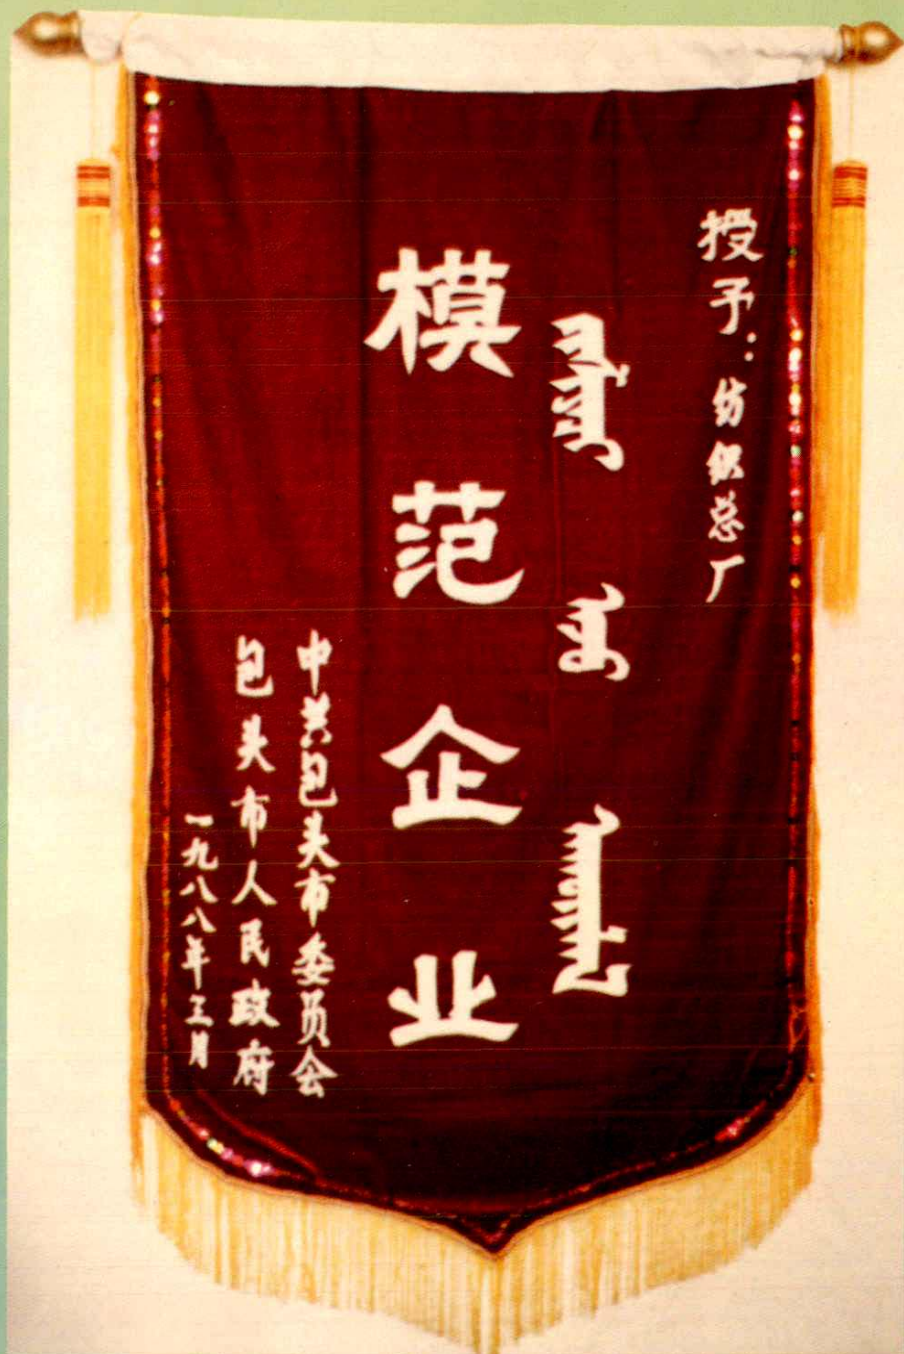 授予：纺织总厂
模范企业
中共包头市委员会
包头市人民政府
一九八八年三月